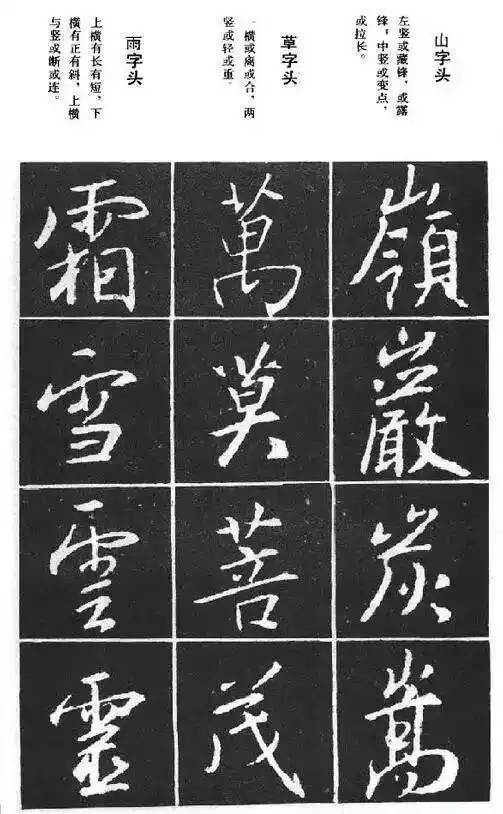 山字头
左竖或藏锋，或露
锋，中竖或变点，
或拉长。
草字头
一横或离或合，两
竖或轻或重。
雨字头
上横有长有短，下
横有正有斜，上横
与竖或断或连。
嶺
巖
炭
嵩
萬
莫
菩
茂
霜
雪
雲
靈